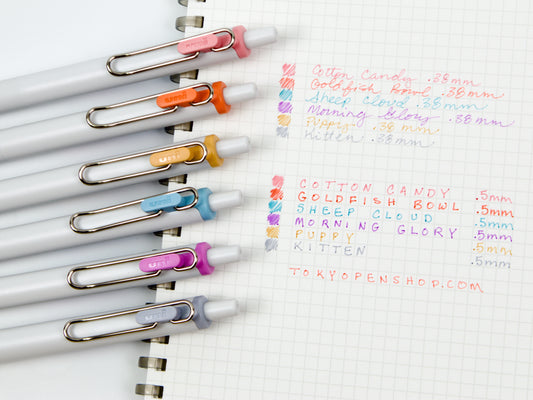 Cotton Candy .38mm
Goldfish Bowl .38mm
Sheep Cloud .38mm
Morning Glory .38mm
Puppy .38mm
Kitten .38mm
COTTON CANDY .5mm
GOLDFISH BOWL .5mm
SHEEP CLOUD .5mm
MORNING GLORY .5mm
PUPPY .5mm
KITTEN .5mm
TOKYOPENSHOP.COM